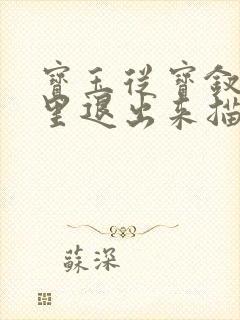 寶玉從寶釵
里退出來描
蘇深